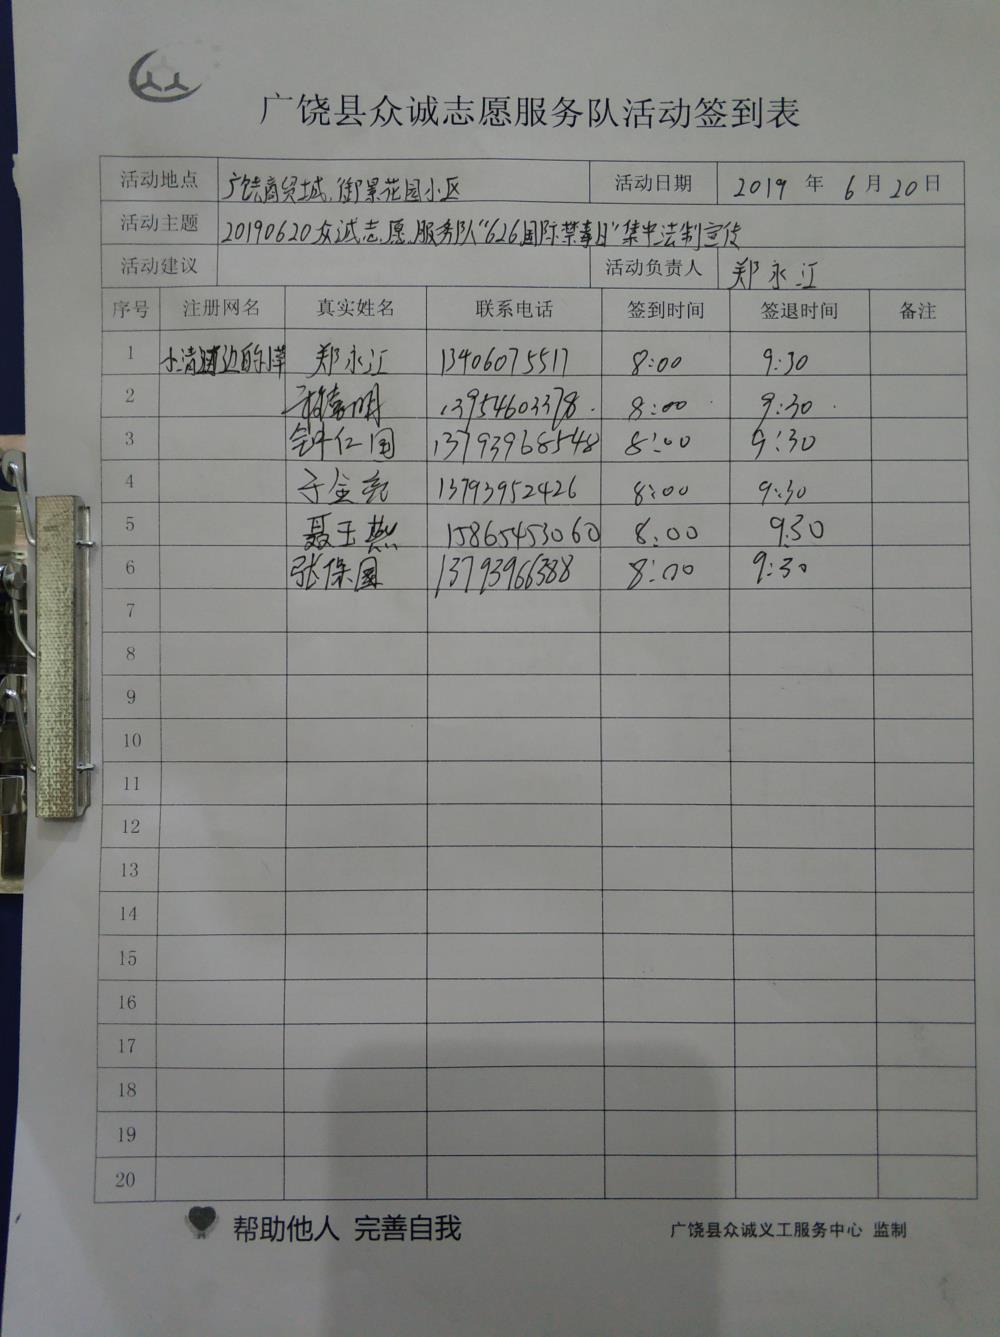 广饶县众诚志愿服务队活动签到表
活动地点 广饶商贸城、御景花园小区 活动日期 2019 年 6 月 20 日
活动主题 20190620众诚志愿服务队“626国际禁毒日”集中法制宣传
活动建议 活动负责人 郑永江
序号 注册网名 真实姓名 联系电话 签到时间 签退时间 备注
1 小清河边的小草 郑永江 13406075517 8:00 9:30
2 13954603378 8:00 9:30
3 钟仁国 13793968548 8:00 9:30
4 于金亮 13793952426 8:00 9:30
5 聂玉燕 15865453060 8:00 9:30
6 张保国 13793966388 8:00 9:30
7
8
9
10
11
12
13
14
15
16
17
18
19
20
帮助他人 完善自我
广饶县众诚义工服务中心 监制